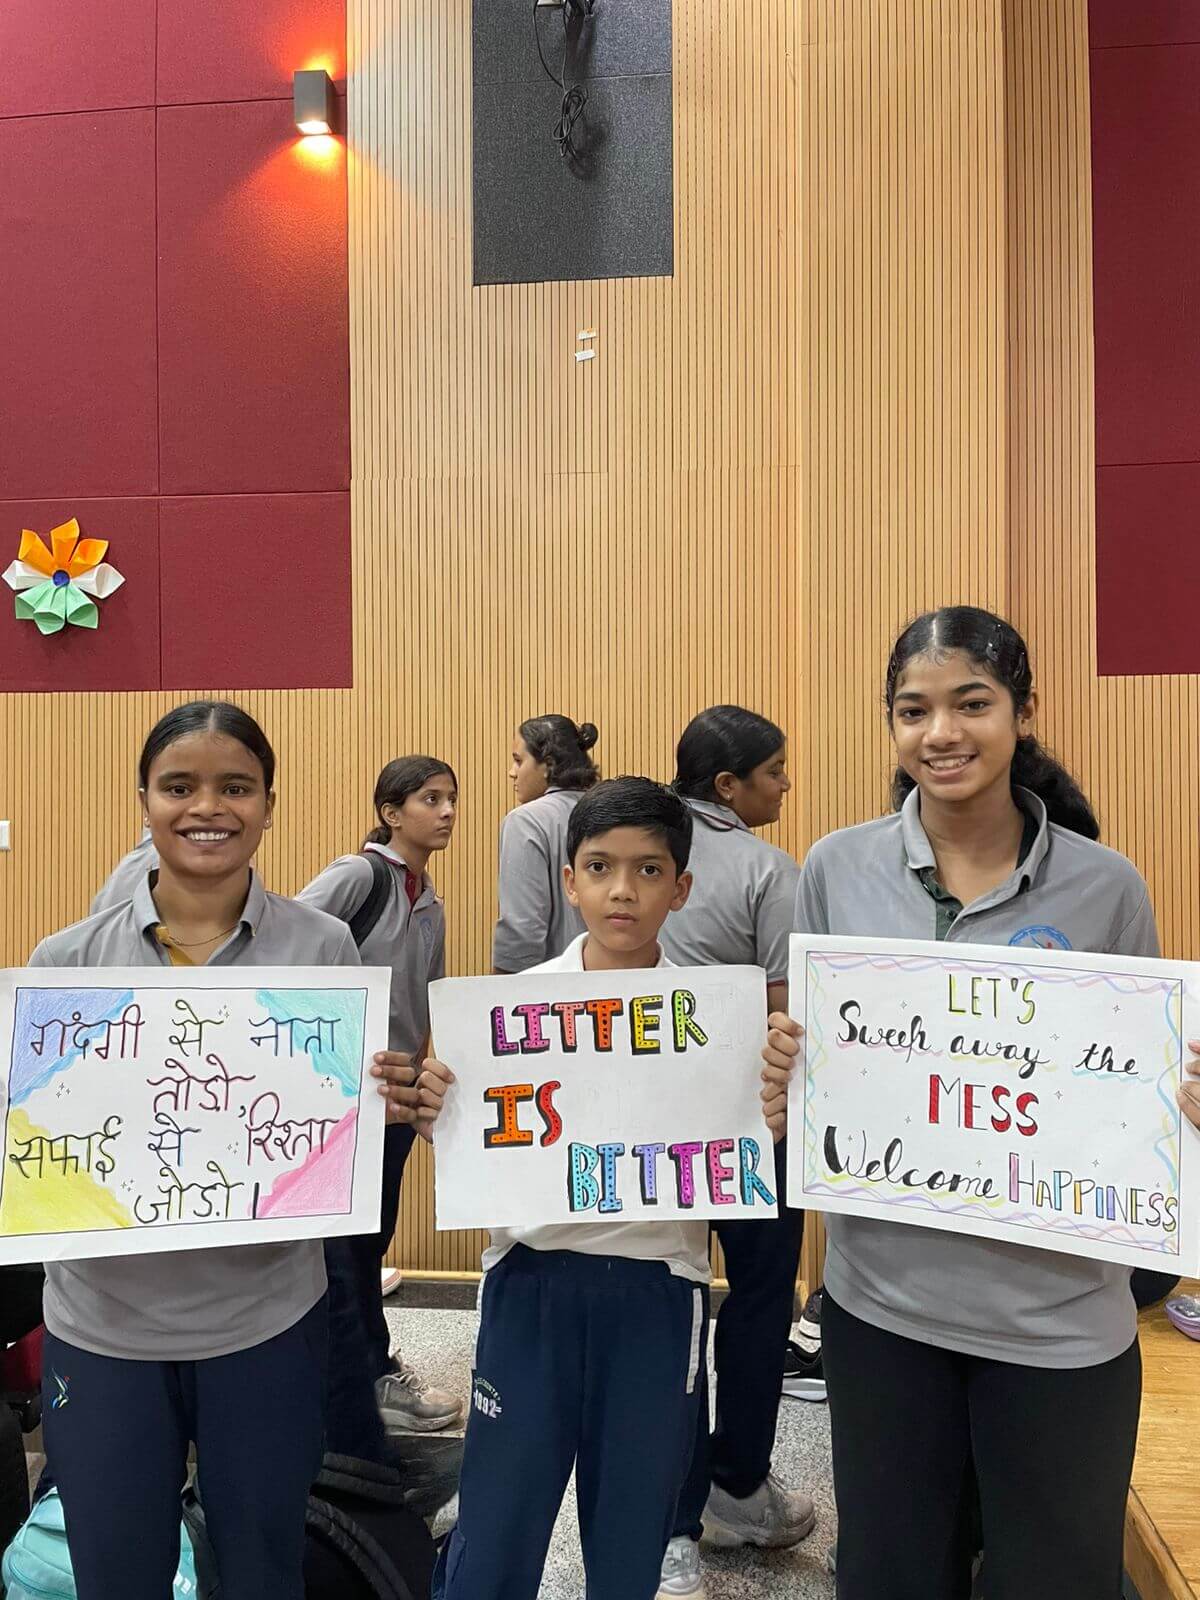 गदंगी से नाता
तोड़ो,
सफाई से रिश्ता
जोड़ो।
LITTER
IS
BITTER
LET'S
Sweep away the
MESS
Welcome HAPPINESS
1992